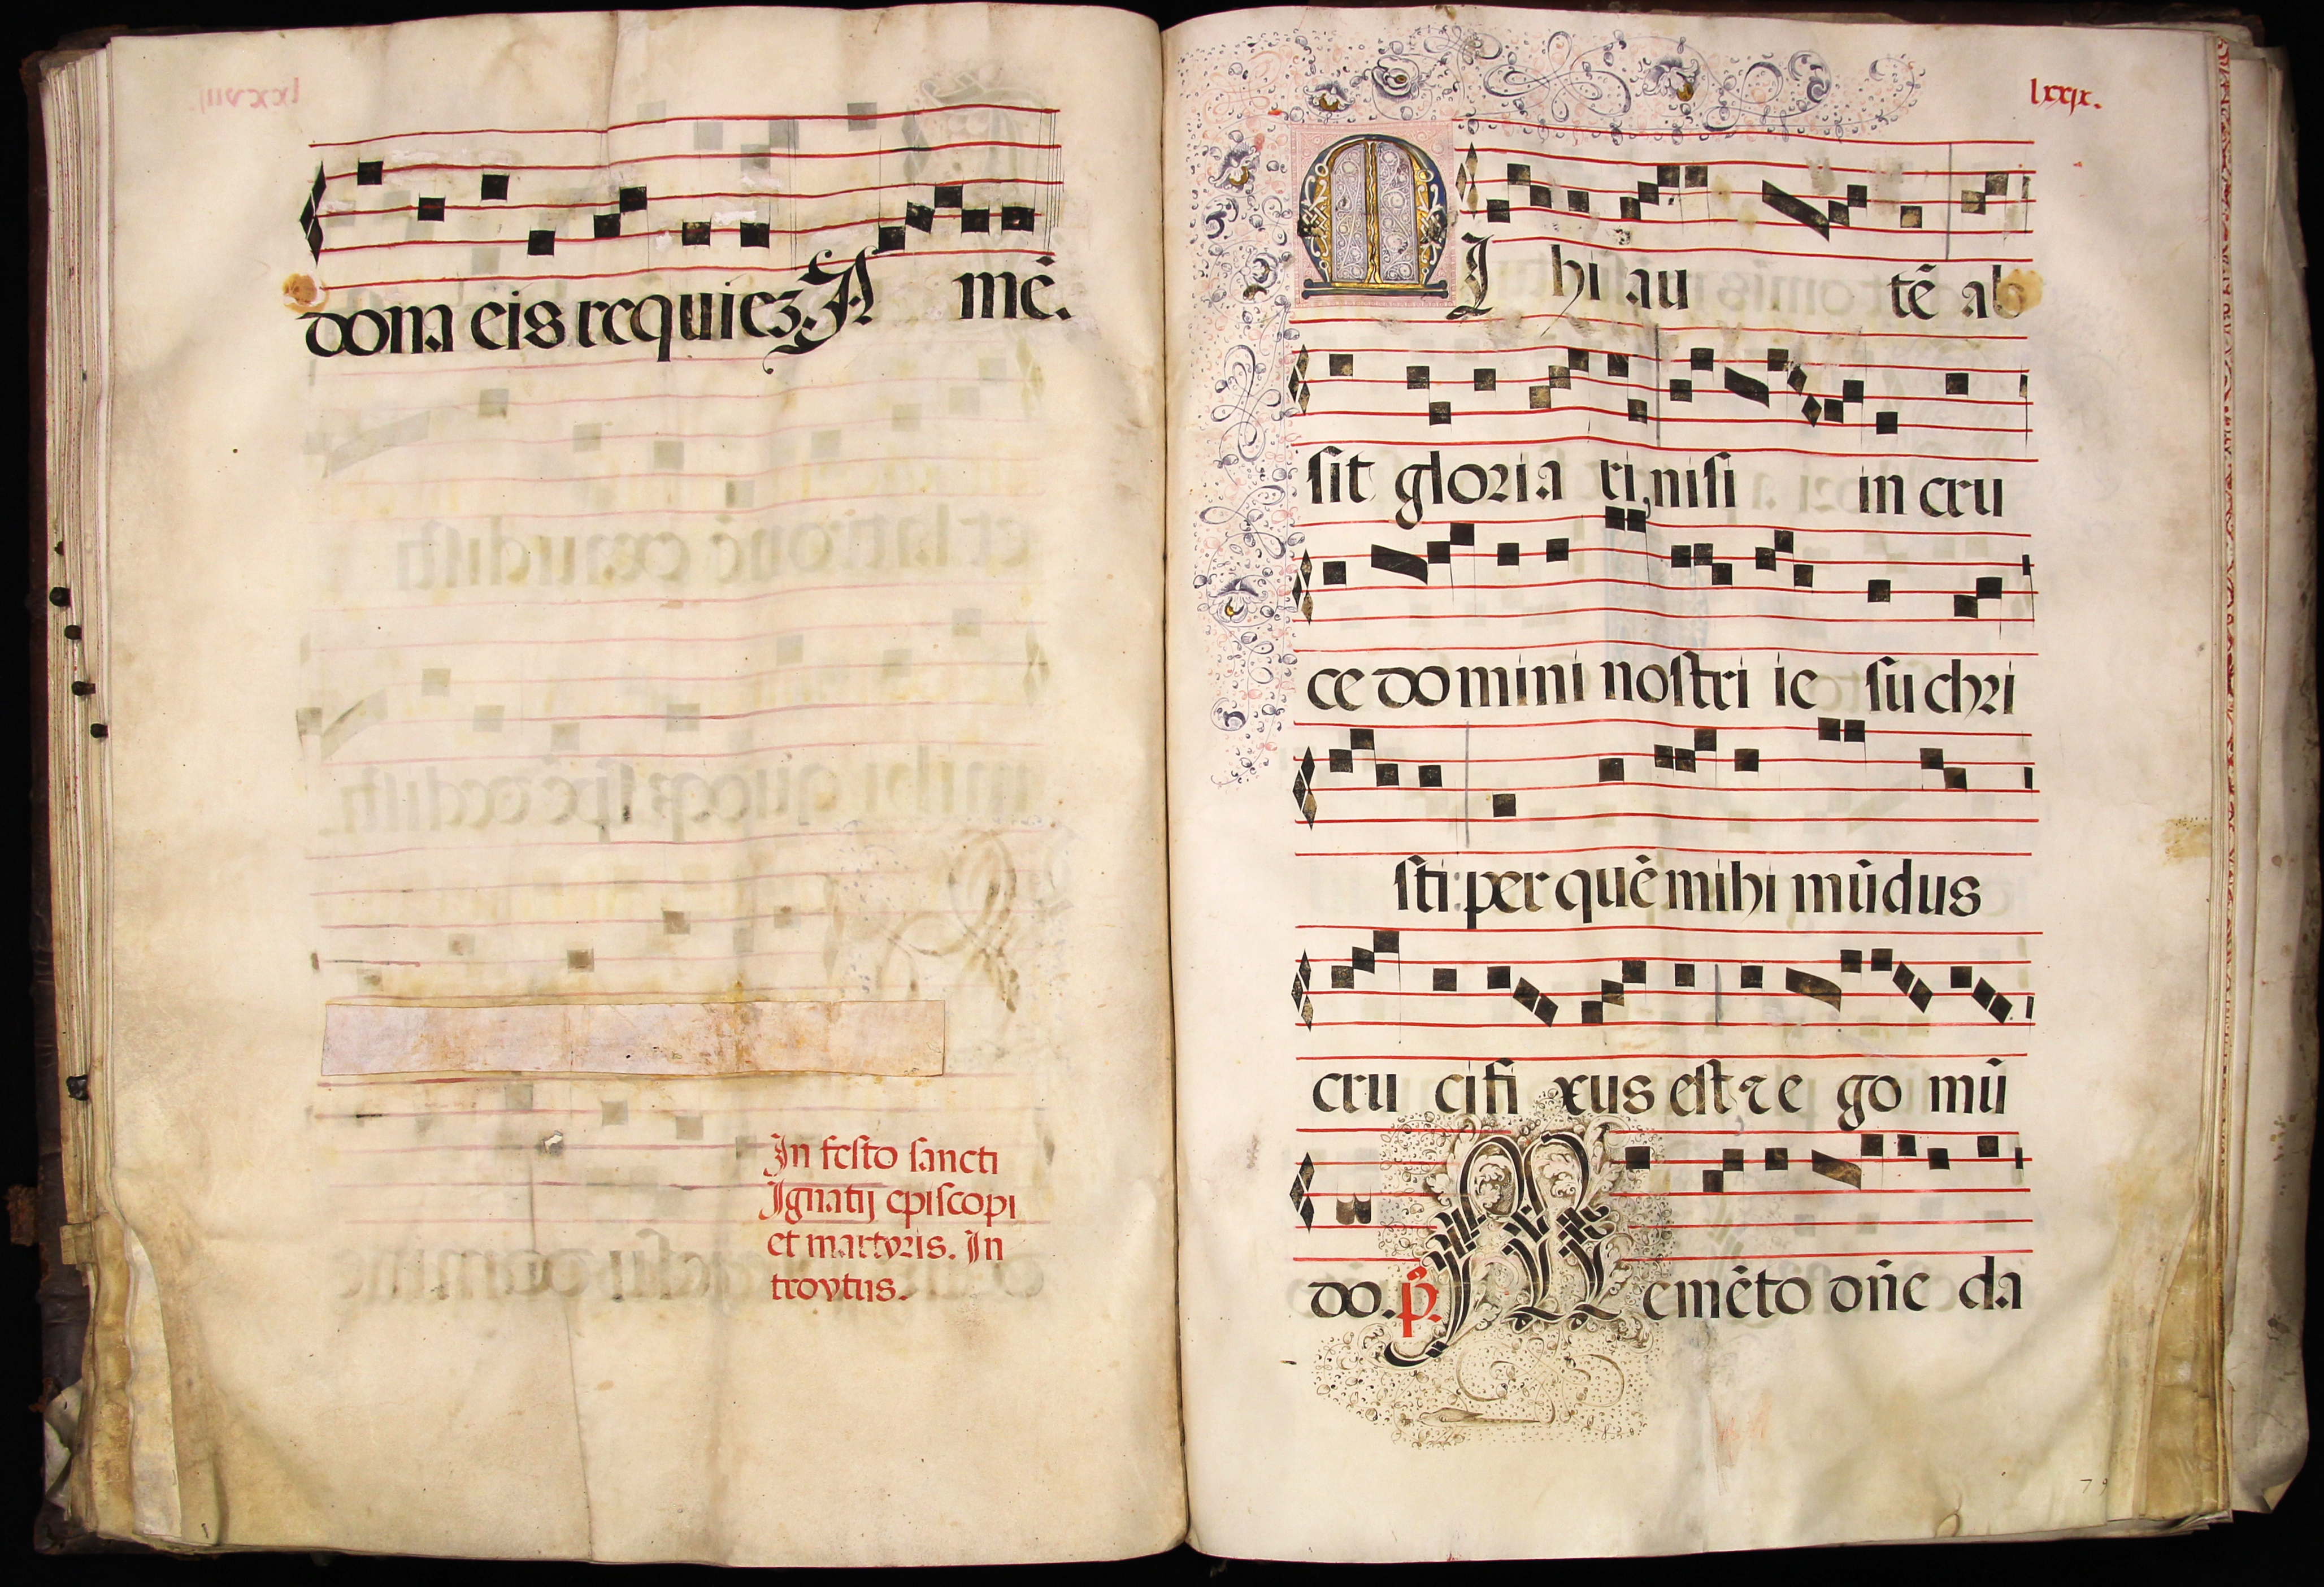 dona eis requiez. A mē.
In festo sancti
Ignatij episcopi
et martyris. In
troytus.
lxxix.
MI hi au tē ab
sit gloria ri nisi in cru
ce do mini nostri ie su chri
sti: per quē mihi mūdus
cru cifi xus est ⁊ e go mū
do. p̄. Memēto dn̄e da
79